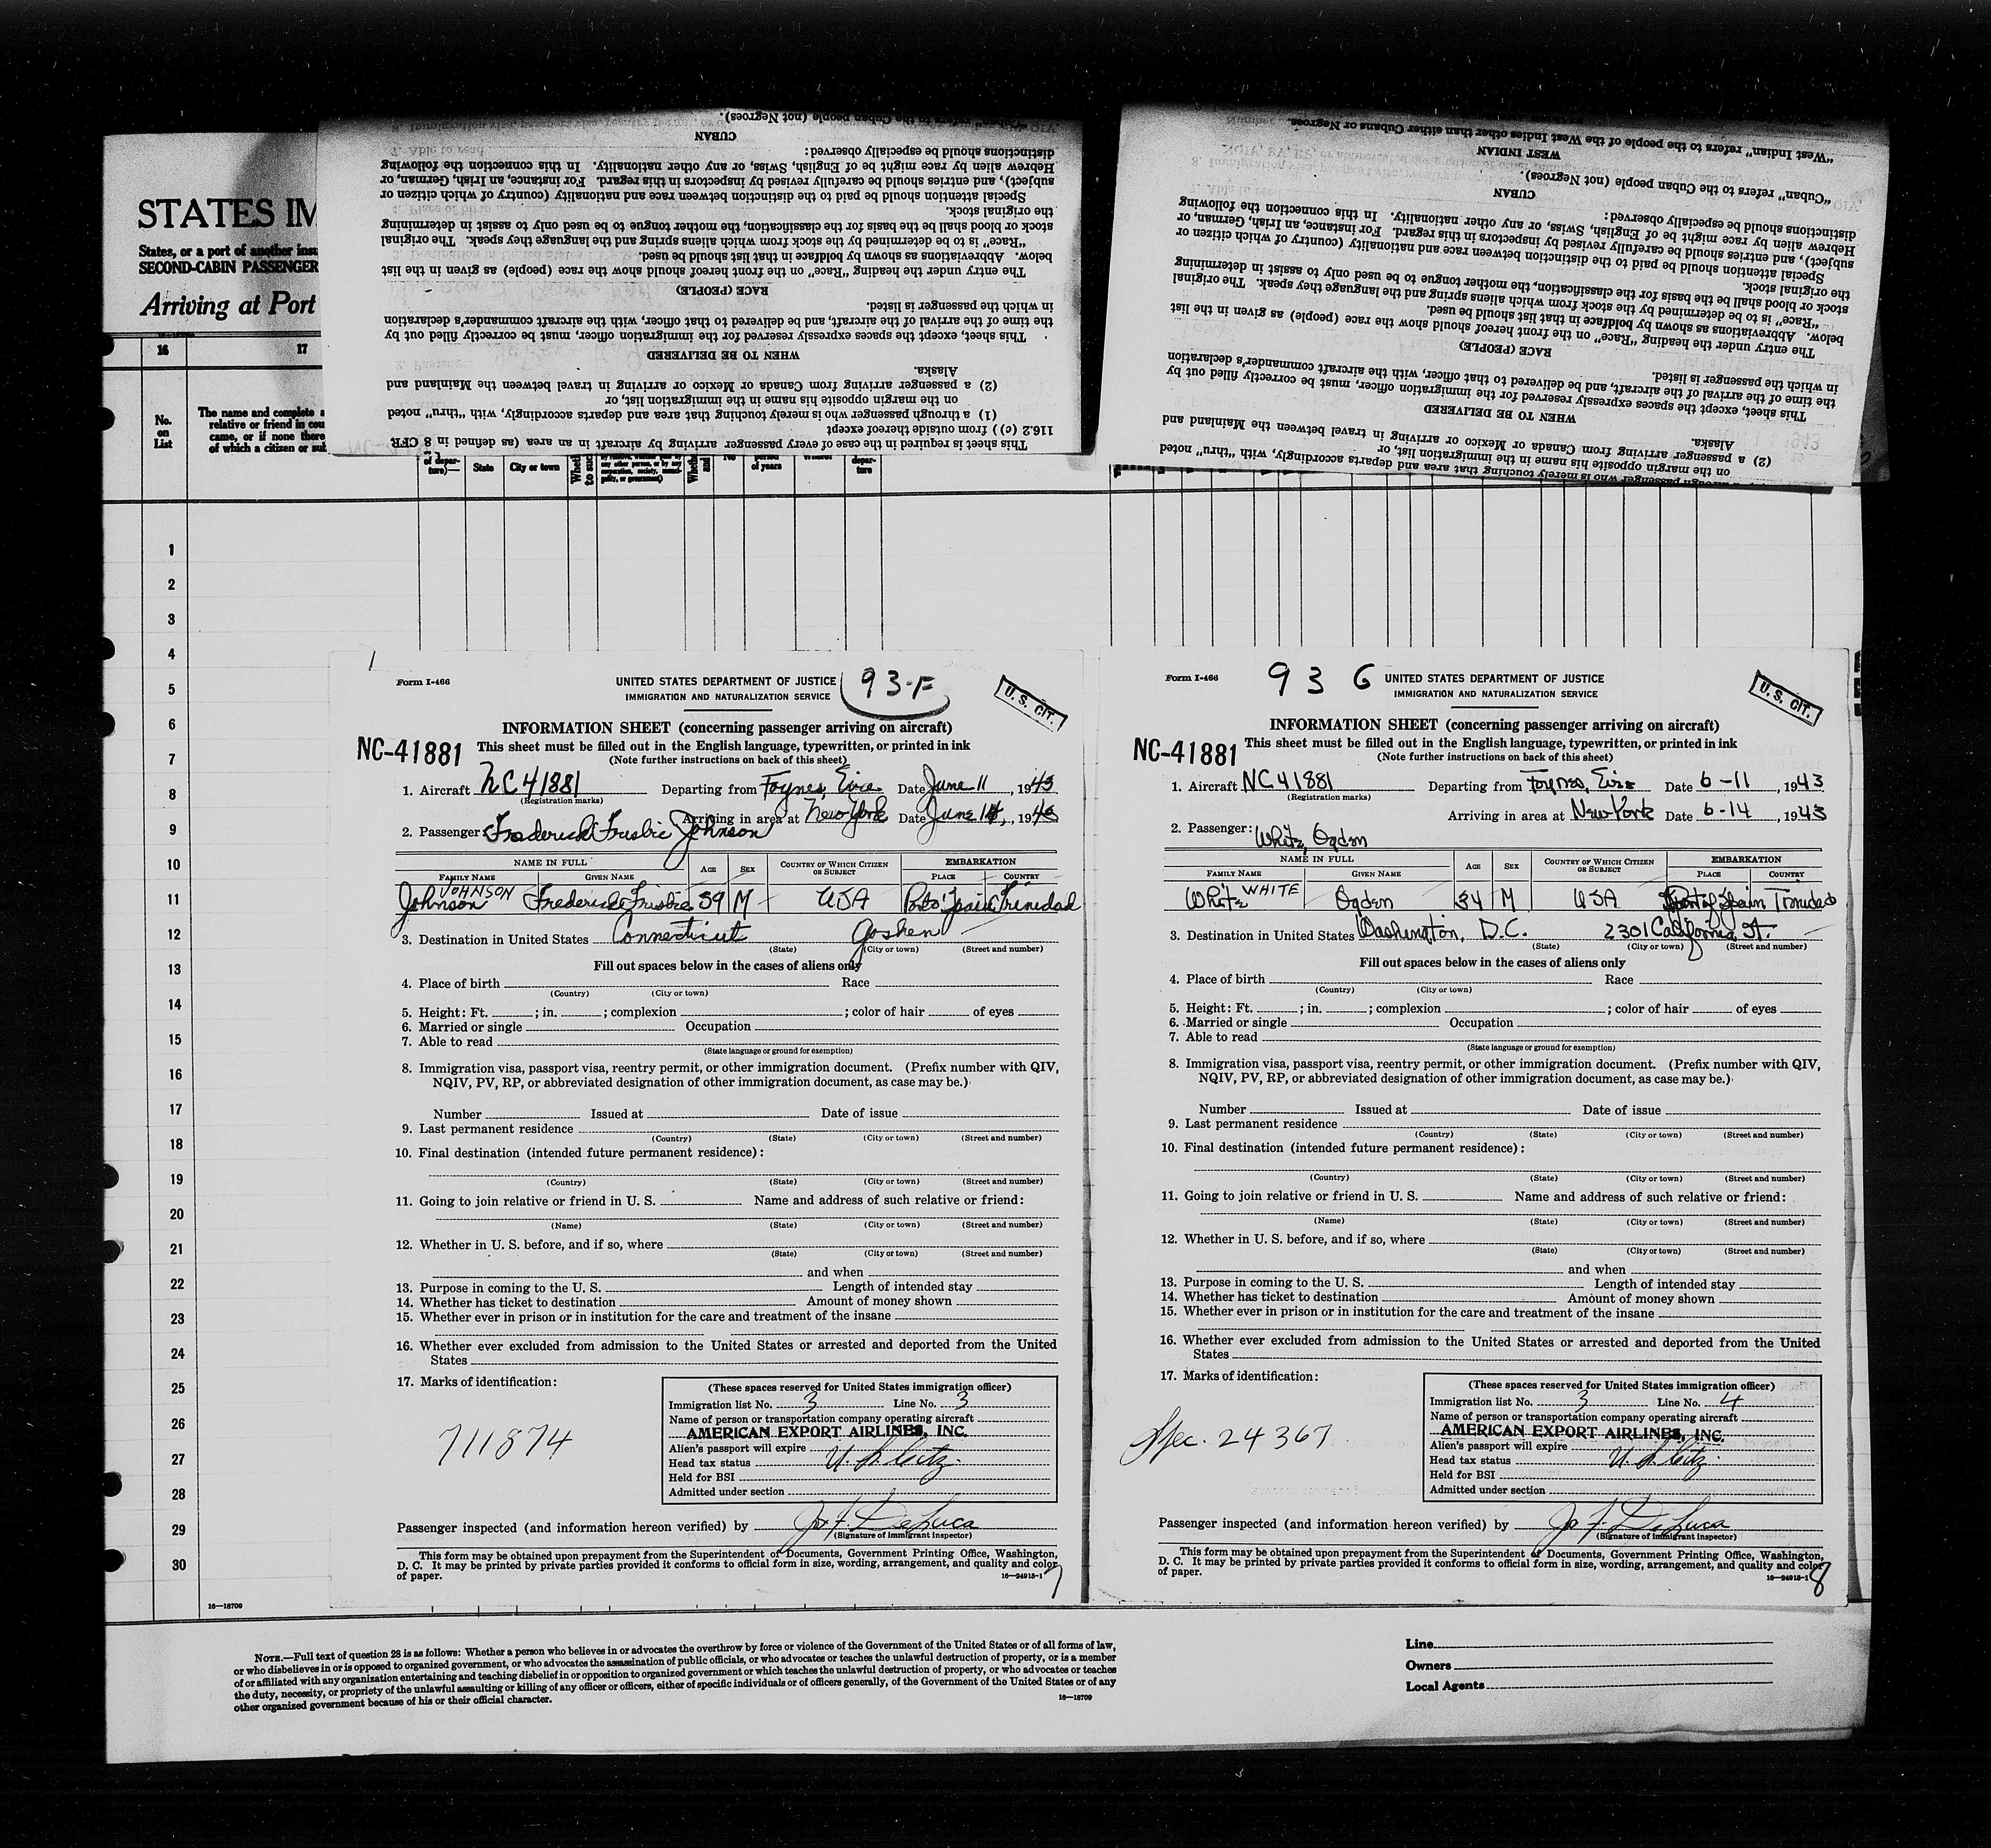 STATES IM
States, or a port of another insu
SECOND-CABIN PASSENGER
Arriving at Port
16 17
No. on List
The name and complete a
relative or friend in cou
came, or if none there
of which a citizen or sub
of depar-
ture)—
State
City or town
of years
depar-
ture
This sheet is required in the case of every passenger arriving by aircraft in an area (as defined in 8 CFR
116.2 (c)) from outside thereof except
(1) a through passenger who is merely touching that area and departs accordingly, with "thru" noted
on the margin opposite his name in the immigration list, or
(2) a passenger arriving from Canada or Mexico or arriving in travel between the Mainland and
Alaska.
WHEN TO BE DELIVERED
This sheet, except the spaces expressly reserved for the immigration officer, must be correctly filled out by
the time of the arrival of the aircraft, and be delivered to that officer, with the aircraft commander's declaration
in which the passenger is listed.
RACE (PEOPLE)
The entry under the heading "Race" on the front hereof should show the race (people) as given in the list
below. Abbreviations as shown by boldface in that list should be used.
"Race" is to be determined by the stock from which aliens spring and the language they speak. The original
stock or blood shall be the basis for the classification, the mother tongue to be used only to assist in determining
the original stock.
Special attention should be paid to the distinction between race and nationality (country of which citizen or
subject), and entries should be carefully revised by inspectors in this regard. For instance, an Irish, German, or
Hebrew alien by race might be of English, Swiss, or any other nationality. In this connection the following
distinctions should be especially observed:
CUBAN
"Cuban" refers to the Cuban people (not Negroes).
through passenger who is merely touching that area and departs accordingly, with "thru" noted
on the margin opposite his name in the immigration list, or
(2) a passenger arriving from Canada or Mexico or arriving in travel between the Mainland and
Alaska.
WHEN TO BE DELIVERED
This sheet, except the spaces expressly reserved for the immigration officer, must be correctly filled out by
the time of the arrival of the aircraft, and be delivered to that officer, with the aircraft commander's declaration
in which the passenger is listed.
RACE (PEOPLE)
The entry under the heading "Race" on the front hereof should show the race (people) as given in the list
below. Abbreviations as shown by boldface in that list should be used.
"Race" is to be determined by the stock from which aliens spring and the language they speak. The original
stock or blood shall be the basis for the classification, the mother tongue to be used only to assist in determining
the original stock.
Special attention should be paid to the distinction between race and nationality (country of which citizen or
subject), and entries should be carefully revised by inspectors in this regard. For instance, an Irish, German, or
Hebrew alien by race might be of English, Swiss, or any other nationality. In this connection the following
distinctions should be especially observed:
CUBAN
"Cuban" refers to the Cuban people (not Negroes).
WEST INDIAN
"West Indian" refers to the people of the West Indies other than either Cubans or Negroes.
1
2
3
4
5
6
7
8
9
10
11
12
13
14
15
16
17
18
19
20
21
22
23
24
25
26
27
28
29
30
16—18709
Form I-466
UNITED STATES DEPARTMENT OF JUSTICE
93-F
IMMIGRATION AND NATURALIZATION SERVICE
U. S. CIT.
INFORMATION SHEET (concerning passenger arriving on aircraft)
NC-41881
This sheet must be filled out in the English language, typewritten, or printed in ink
(Note further instructions on back of this sheet)
1. Aircraft NC41881 Departing from Foynes, Eire Date June 11, 1943
(Registration marks)
Arriving in area at New York Date June 14, 1943
2. Passenger: Frederick Frisbie Johnson
NAME IN FULL AGE SEX COUNTRY OF WHICH CITIZEN OR SUBJECT EMBARKATION
FAMILY NAME GIVEN NAME PLACE COUNTRY
JOHNSON
Johnson Frederick Frisbie 39 M USA Port o' Spain Trinidad
3. Destination in United States Connecticut Goshen
(State) (City or town) (Street and number)
Fill out spaces below in the cases of aliens only
4. Place of birth Race
(Country) (City or town)
5. Height: Ft. ; in. ; complexion ; color of hair of eyes
6. Married or single Occupation
7. Able to read
(State language or ground for exemption)
8. Immigration visa, passport visa, reentry permit, or other immigration document. (Prefix number with QIV,
NQIV, PV, RP, or abbreviated designation of other immigration document, as case may be.)
Number Issued at Date of issue
9. Last permanent residence
(Country) (State) (City or town) (Street and number)
10. Final destination (intended future permanent residence):
(Country) (State) (City or town) (Street and number)
11. Going to join relative or friend in U. S. Name and address of such relative or friend:
(Name) (State) (City or town) (Street and number)
12. Whether in U. S. before, and if so, where
(State) (City or town) (Street and number)
and when
13. Purpose in coming to the U. S. Length of intended stay
14. Whether has ticket to destination Amount of money shown
15. Whether ever in prison or in institution for the care and treatment of the insane
16. Whether ever excluded from admission to the United States or arrested and deported from the United
States
17. Marks of identification:
711874
(These spaces reserved for United States immigration officer)
Immigration list No. 3 Line No. 3
Name of person or transportation company operating aircraft
AMERICAN EXPORT AIRLINES, INC.
Alien's passport will expire
Head tax status U. S. Citz.
Held for BSI
Admitted under section
Passenger inspected (and information hereon verified) by Jo F. DeLuca
(Signature of immigrant inspector)
This form may be obtained upon prepayment from the Superintendent of Documents, Government Printing Office, Washington,
D. C. It may be printed by private parties provided it conforms to official form in size, wording, arrangement, and quality and color
of paper.
16—24915-1
7
Form I-466
93 G
UNITED STATES DEPARTMENT OF JUSTICE
IMMIGRATION AND NATURALIZATION SERVICE
U. S. CIT.
INFORMATION SHEET (concerning passenger arriving on aircraft)
NC-41881
This sheet must be filled out in the English language, typewritten, or printed in ink
(Note further instructions on back of this sheet)
1. Aircraft NC41881 Departing from Foynes, Eire Date 6-11, 1943
(Registration marks)
Arriving in area at New York Date 6-14, 1943
2. Passenger: White, Ogden
NAME IN FULL AGE SEX COUNTRY OF WHICH CITIZEN OR SUBJECT EMBARKATION
FAMILY NAME GIVEN NAME PLACE COUNTRY
White WHITE Ogden 34 M USA Port of Spain Trinidad
3. Destination in United States Washington, D.C. 2301 California St.
(State) (City or town) (Street and number)
Fill out spaces below in the cases of aliens only
4. Place of birth Race
(Country) (City or town)
5. Height: Ft. ; in. ; complexion ; color of hair of eyes
6. Married or single Occupation
7. Able to read
(State language or ground for exemption)
8. Immigration visa, passport visa, reentry permit, or other immigration document. (Prefix number with QIV,
NQIV, PV, RP, or abbreviated designation of other immigration document, as case may be.)
Number Issued at Date of issue
9. Last permanent residence
(Country) (State) (City or town) (Street and number)
10. Final destination (intended future permanent residence):
(Country) (State) (City or town) (Street and number)
11. Going to join relative or friend in U. S. Name and address of such relative or friend:
(Name) (State) (City or town) (Street and number)
12. Whether in U. S. before, and if so, where
(State) (City or town) (Street and number)
and when
13. Purpose in coming to the U. S. Length of intended stay
14. Whether has ticket to destination Amount of money shown
15. Whether ever in prison or in institution for the care and treatment of the insane
16. Whether ever excluded from admission to the United States or arrested and deported from the United
States
17. Marks of identification:
Spec. 24367
(These spaces reserved for United States immigration officer)
Immigration list No. 3 Line No. 4
Name of person or transportation company operating aircraft
AMERICAN EXPORT AIRLINES, INC.
Alien's passport will expire
Head tax status U. S. Citz.
Held for BSI
Admitted under section
Passenger inspected (and information hereon verified) by Jo F. DeLuca
(Signature of immigrant inspector)
This form may be obtained upon prepayment from the Superintendent of Documents, Government Printing Office, Washington,
D. C. It may be printed by private parties provided it conforms to official form in size, wording, arrangement, and quality and color
of paper.
16—24915-1
8
NOTE.—Full text of question 28 is as follows: Whether a person who believes in or advocates the overthrow by force or violence of the Government of the United States or of all forms of law,
or who disbelieves in or is opposed to organized government, or who advocates the assassination of public officials, or who advocates or teaches the unlawful destruction of property, or is a member
of or affiliated with any organization entertaining and teaching disbelief in or opposition to organized government or which teaches the unlawful destruction of property, or who advocates or teaches
the duty, necessity, or propriety of the unlawful assaulting or killing of any officer or officers, either of specific individuals or of officers generally, of the Government of the United States or of any
other organized government because of his or their official character.
16—18709
Line
Owners
Local Agents